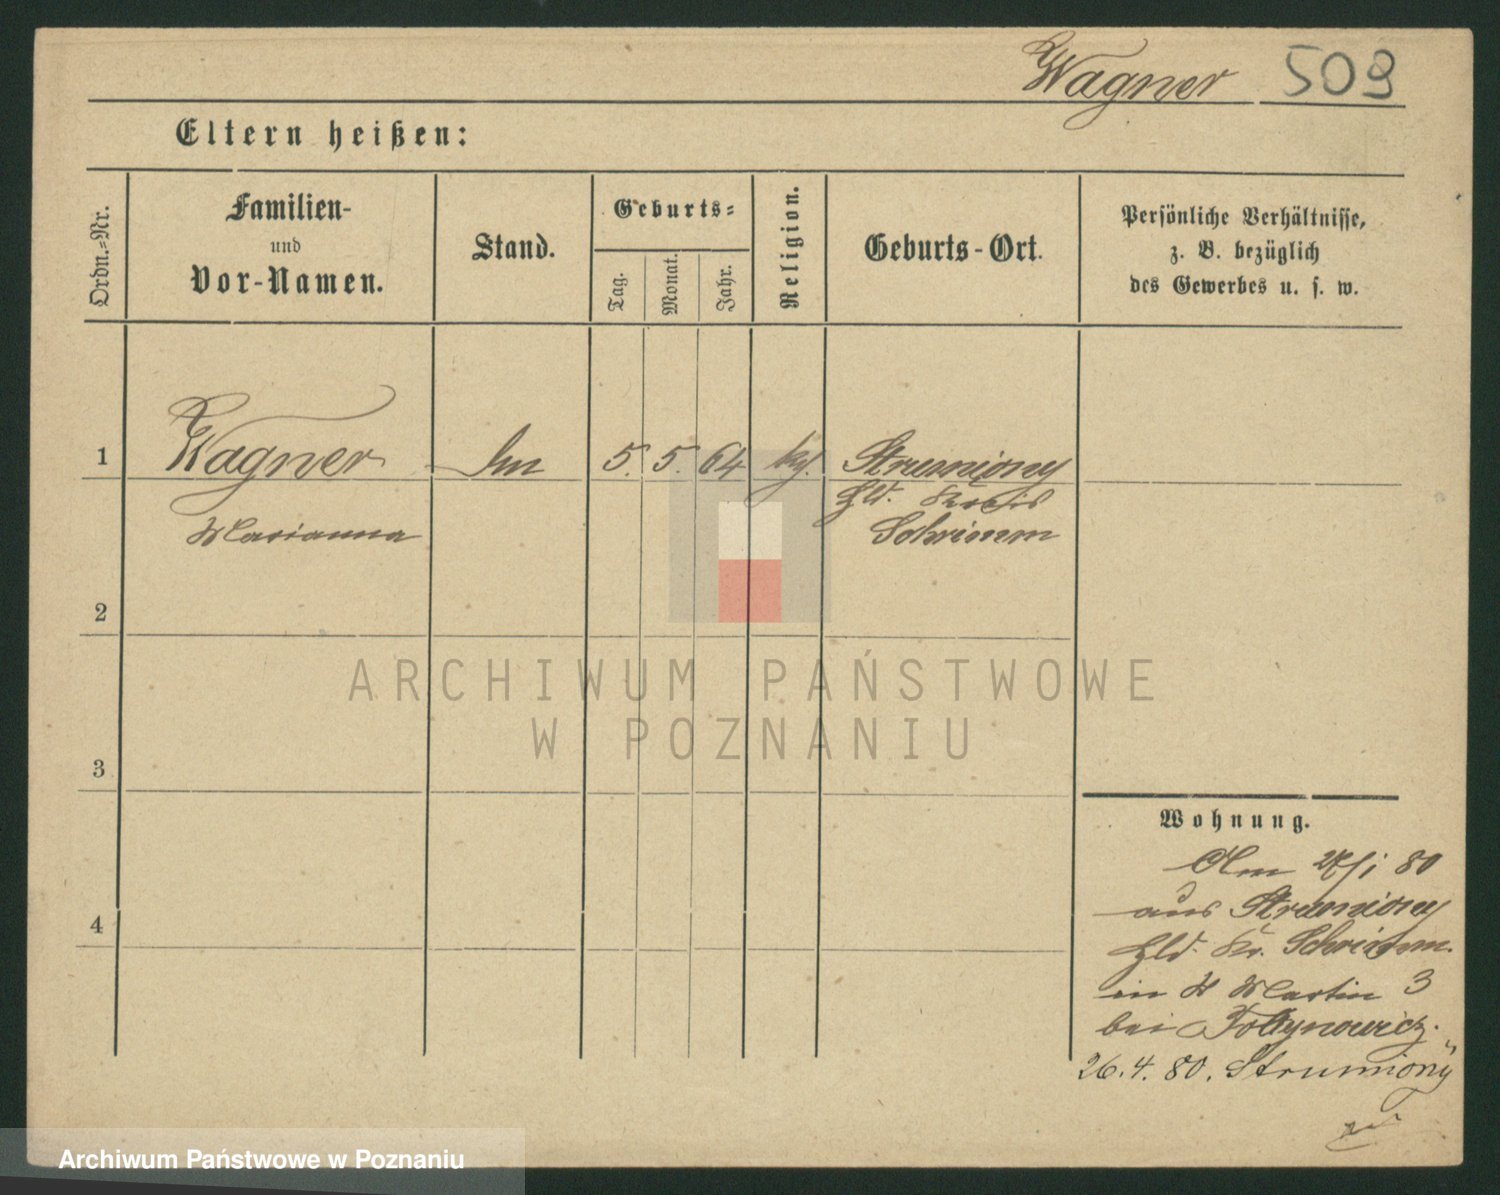 Wagner 509
Eltern heißen:
Ordn.=Nr.
Familien-
und
Vor-Namen.
Stand.
Geburts=
Tag.
Monat.
Jahr.
Religion.
Geburts-Ort.
Persönliche Verhältnisse,
z. B. bezüglich
des Gewerbes u. s. w.
1 Wagner 5. 5. 64 Strumiany
Kreis
Marianna Schrimm
2
ARCHIWUM PAŃSTWOWE
W POZNANIU
3
Wohnung.
Am 80
aus Strumiany
Kr. Schrimm.
4
in St Martin 3
bei
26.4.80. Strumiany
Archiwum Państwowe w Poznaniu